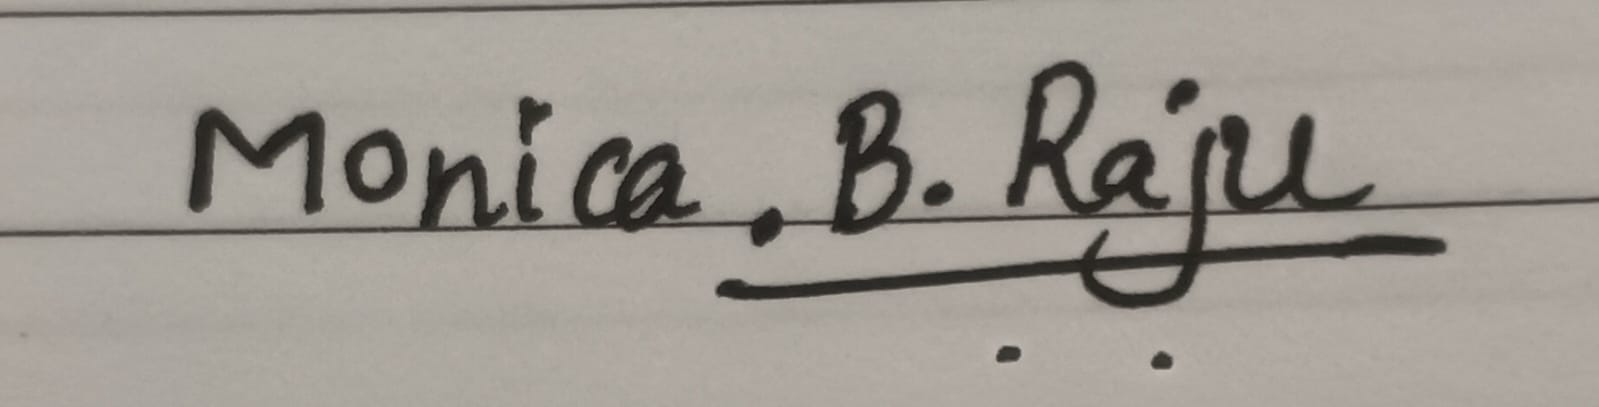 Monica. B. Raju